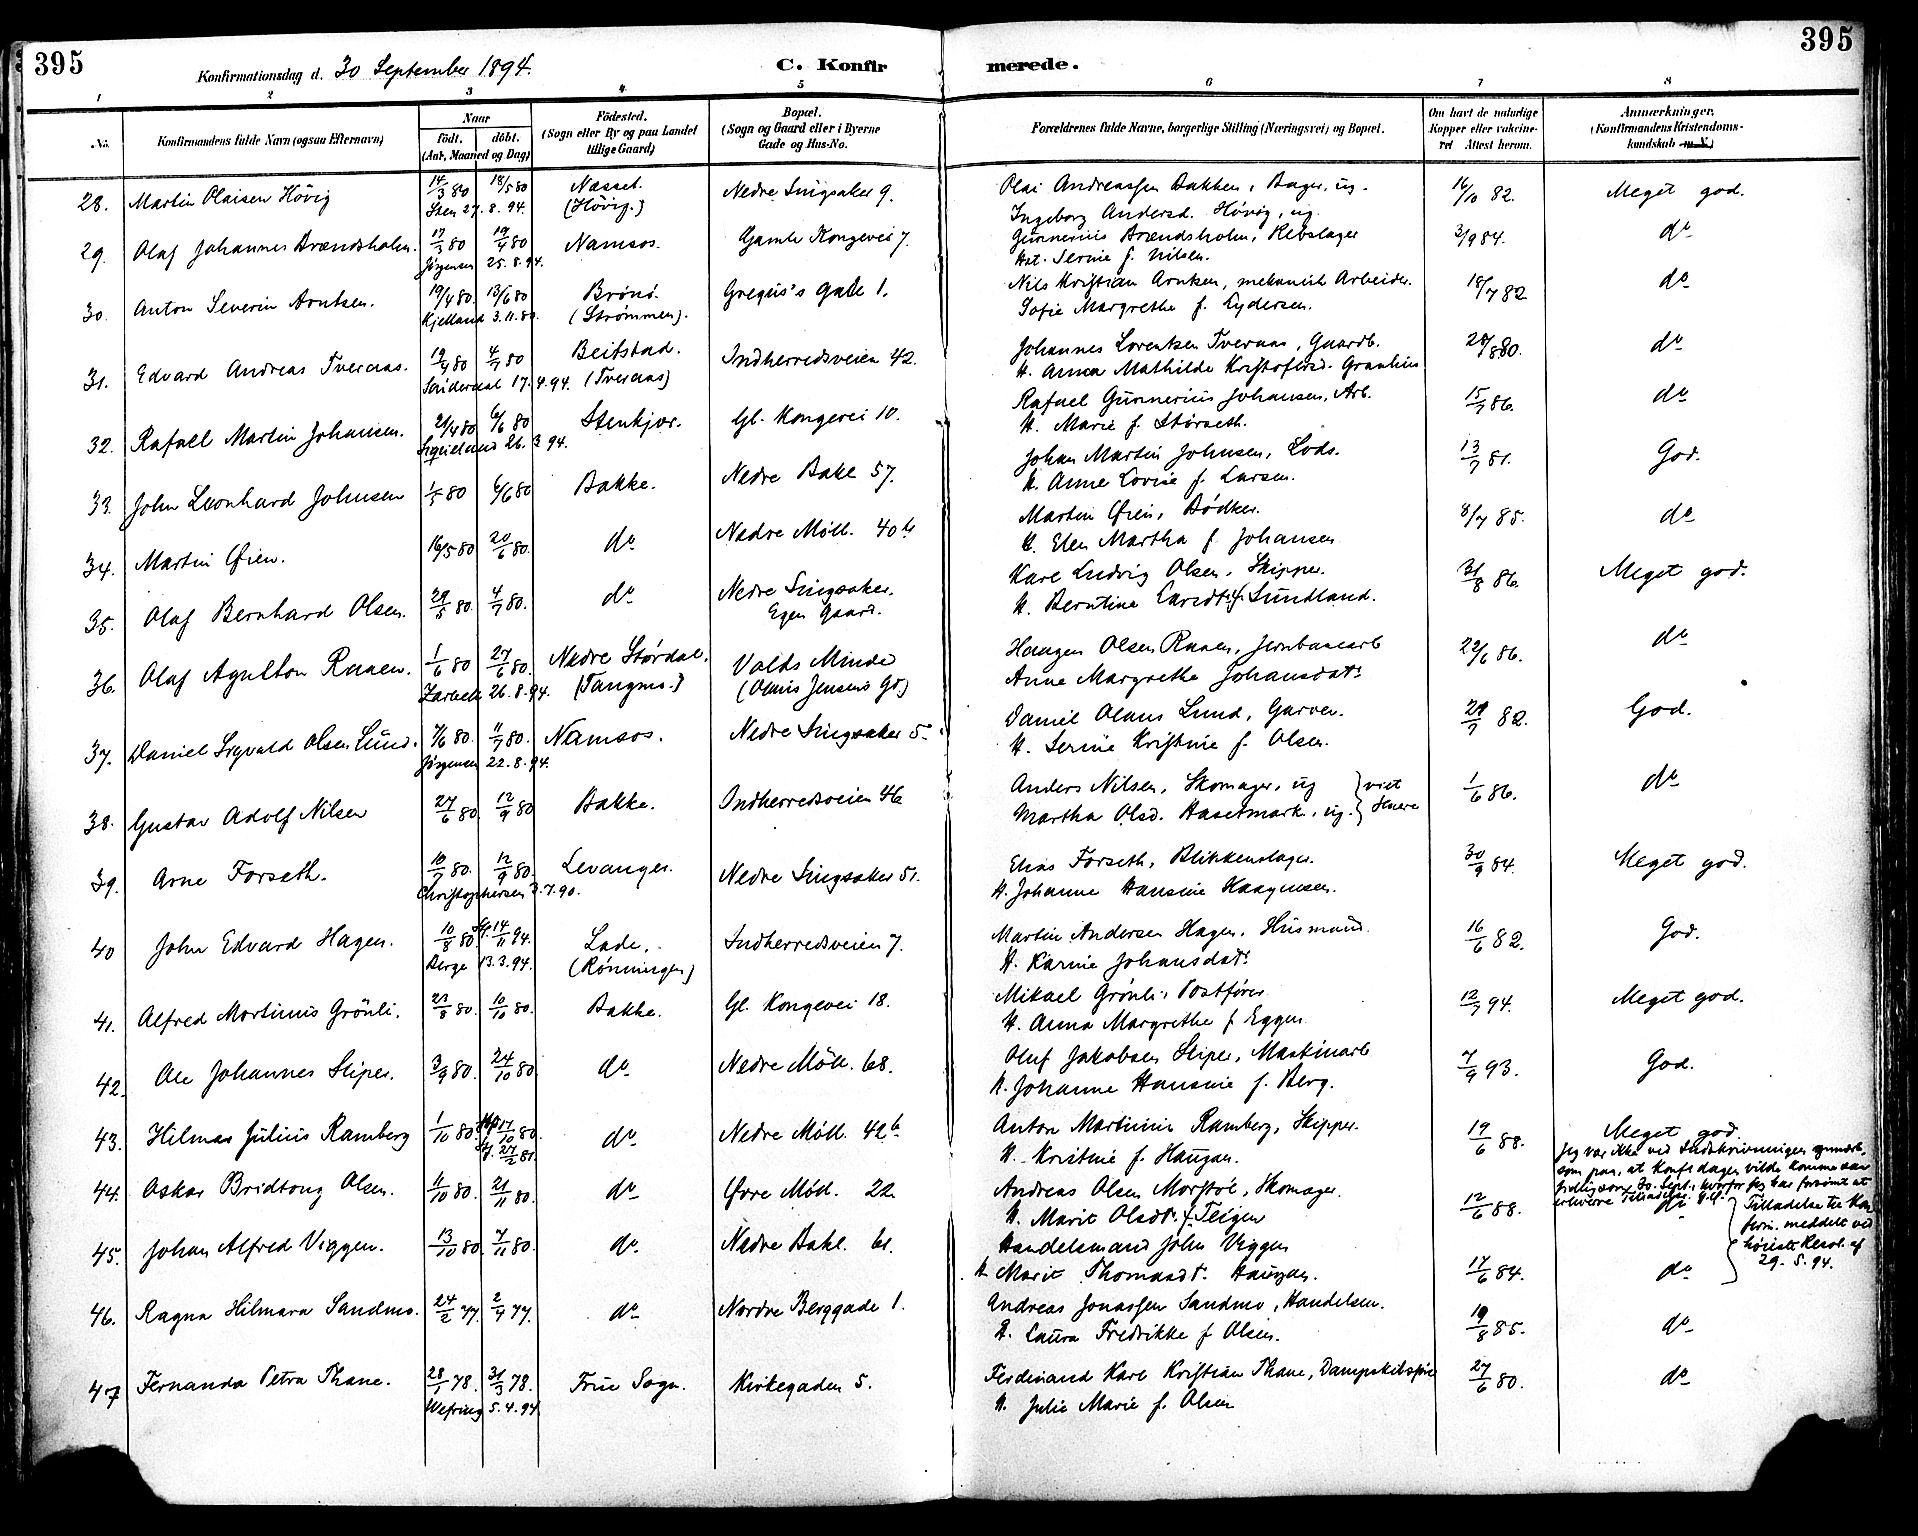 395
395
Konfirmationsdag d. 30 September 1894.
C. Konfirmerede.
1 2 3 4 5 6 7 8
No.
Konfirmandens fulde Navn (ogsaa Efternavn)
Naar
født. døbt.
(Aar, Maaned og Dag)
Fødested.
(Sogn eller By og paa Landet
tillige Gaard)
Bopæl.
(Sogn og Gaard eller i Byerne
Gade og Hus-No.
Forældrenes fulde Navne, borgerlige Stilling (Næringsvei) og Bopæl.
Om havt de naturlige
Kopper eller vakcine-
ret Attest herom.
Anmærkninger.
(Konfirmandens Kristendoms-
kundskab m. V.)
28. Martin Olaisen Hövig 14/3 80 18/5 80 Næsset. Nedre Singsaker 9. Olai Andreassen Bakken, Bager, ug. 16/10 82. Meget god.
Sten 27.8.94. (Hövig.) Ingeborg Andersd. Hövig, ug.
29. Olaf Johannes Brændsholm. 17/3 80 19/4 80 Namsos. Gamle Kongevei 7. Gunnerius Brændsholm, Rebslager 3/9 84. do
Jörgensen 25.8.94. Hst. Serine f. Nilsen.
30. Anton Severin Arntsen. 19/4 80. 13/6 80 Brönö. Gregus's gade 1. Nils Kristian Arntsen, mekanisk Arbeider. 18/7 82 do
Kjelland 3.11.80. (Strömmen). Sofie Margrethe f. Eydersen.
31. Edvard Andreas Tveraas. 19/4 80 4/7 80 Beitstad. Indherredsveien 42. Johannes Lorentsen Tveraas, Gaardb. 28/8 80. do
17.4.94. (Tveraas) H. Anna Mathilde Kristofersd.
32. Rafael Martin Johansen. 21/4 80 6/6 80 Stenkjær. Gl. Kongevei 10. Rafael Gunnerius Johansen, Arb. 15/7 86. do
26.3.94. H. Marie f. Störseth.
33. John Leonhard Johnsen 1/5 80 6/6 80 Bakke. Nedre Bakl 57. Johan Martin Johnsen, Lods. 13/7 81. God.
H. Anne Lovise f. Larsen.
34. Martin Öien. 16/5 80 20/6 80. do Nedre Möll. 40 b Martin Öien, Bödker. 8/7 85. do
H. Elen Martha f. Johansen
35. Olaf Bernhard Olsen. 29/5 80. 4/7 80. do Nedre Singsaker. Karl Ludvig Olsen, Skipper. 31/8 86. Meget god.
Egen Gaard. H. Berntine Earedt. f. Sundland.
36. Olaf Agathon Raaen. 1/6 80 27/6 80. Nedre Stördal. Volds Minde Haagen Olsen Raaen, Jernbanearb 22/6 86. do
26.8.94. (Tangmo.) (Olaus Jensens Gd) Anne Margrethe Johansdatr
37. Daniel Sigvald Olsen Lund. 7/6 80. 11/7 80. Namsos. Nedre Singsaker 5. Daniel Olaus Lund, Garver. 29/7 82. God.
Jörgensen 22.8.94. H. Serine Kristine f. Olsen.
38. Gustav Adolf Nilsen 27/6 80. 12/9 80 Bakke. Indherredsveien 46 Anders Nilsen, Skomager, ug } viet 1/6 86. do
Martha Olsd. Hasetmark, ug. } senere
39. Arne Forseth. 10/7 80. 12/9 80. Levanger. Nedre Singsaker 51. Elias Forseth, Blikkenslager. 30/9 84. Meget god.
Christophersen 3.7.90. H. Johanne Hansine Haagensen.
40 John Edvard Hagen. 10/8 80. 14/11 94. Lade. Indherredsveien 7. Martin Andersen Hagen, Husmand. 16/6 82. God.
Berge 13.3.94. (Rönningen) H. Karine Johansdatr.
41. Alfred Martinus Grönli. 23/8 80. 10/10 80. Bakke. Gl. Kongevei 18. Mikael Grönli, Postförer 12/7 94. Meget god.
H. Anna Margrethe f. Eggen.
42. Ole Johannes Sliper. 3/9 80. 24/10 80 do Nedre Möll. 68. Oluf Jakobsen Sliper, Maskinarb 7/9 93. God.
H. Johanne Hansine f. Berg.
43. Hilmar Julius Ramberg 1/10 80. 17/10 80. do Nedre Möll. 42 b Anton Martinius Ramberg, Skipper. 19/6 88. Meget god.
27/2 81. H. Kristine f. Haugan.
Jeg var ikke ved Indskrivningen opmærk-
som paa, at Konfs dagen vilde komme saa
tidlig som 30. Sept., hvorfor jeg har forsömt at
erhverve Tilladelse.
44. Oskar Bridtong Olsen. 11/10 80. 21/11 80. do Övre Möll. 22 Andreas Olsen Morstöl, Skomager. 12/6 88.
H. Marit Olsdtr. f. Teigen
Tilladelse til Kon
firm. meddelt ved
höieste Resol. af
29.5.94.
45. Johan Alfred Viggen. 13/10 80. 7/11 80. do Nedre Bakl. 61. Handelsmand John Viggen 17/6 84. do
H. Marit Thomasdtr. Haugan.
46. Ragna Hilmara Sandmo. 24/2 77. 2/4 77. do Nordre Berggade 1. Andreas Jonassen Sandmo, Handelsm. 19/8 85. do
H. Laura Fredrikke f. Olsen.
47 Fernanda Petra Thane. 28/1 78. 31/3 78. Frue Sogn. Kirkegaden 5. Ferdinand Karl Kristian Thane, Dampskibsförer 27/6 80. do
Wefring 5.4.94. H. Julie Marie f. Olsen